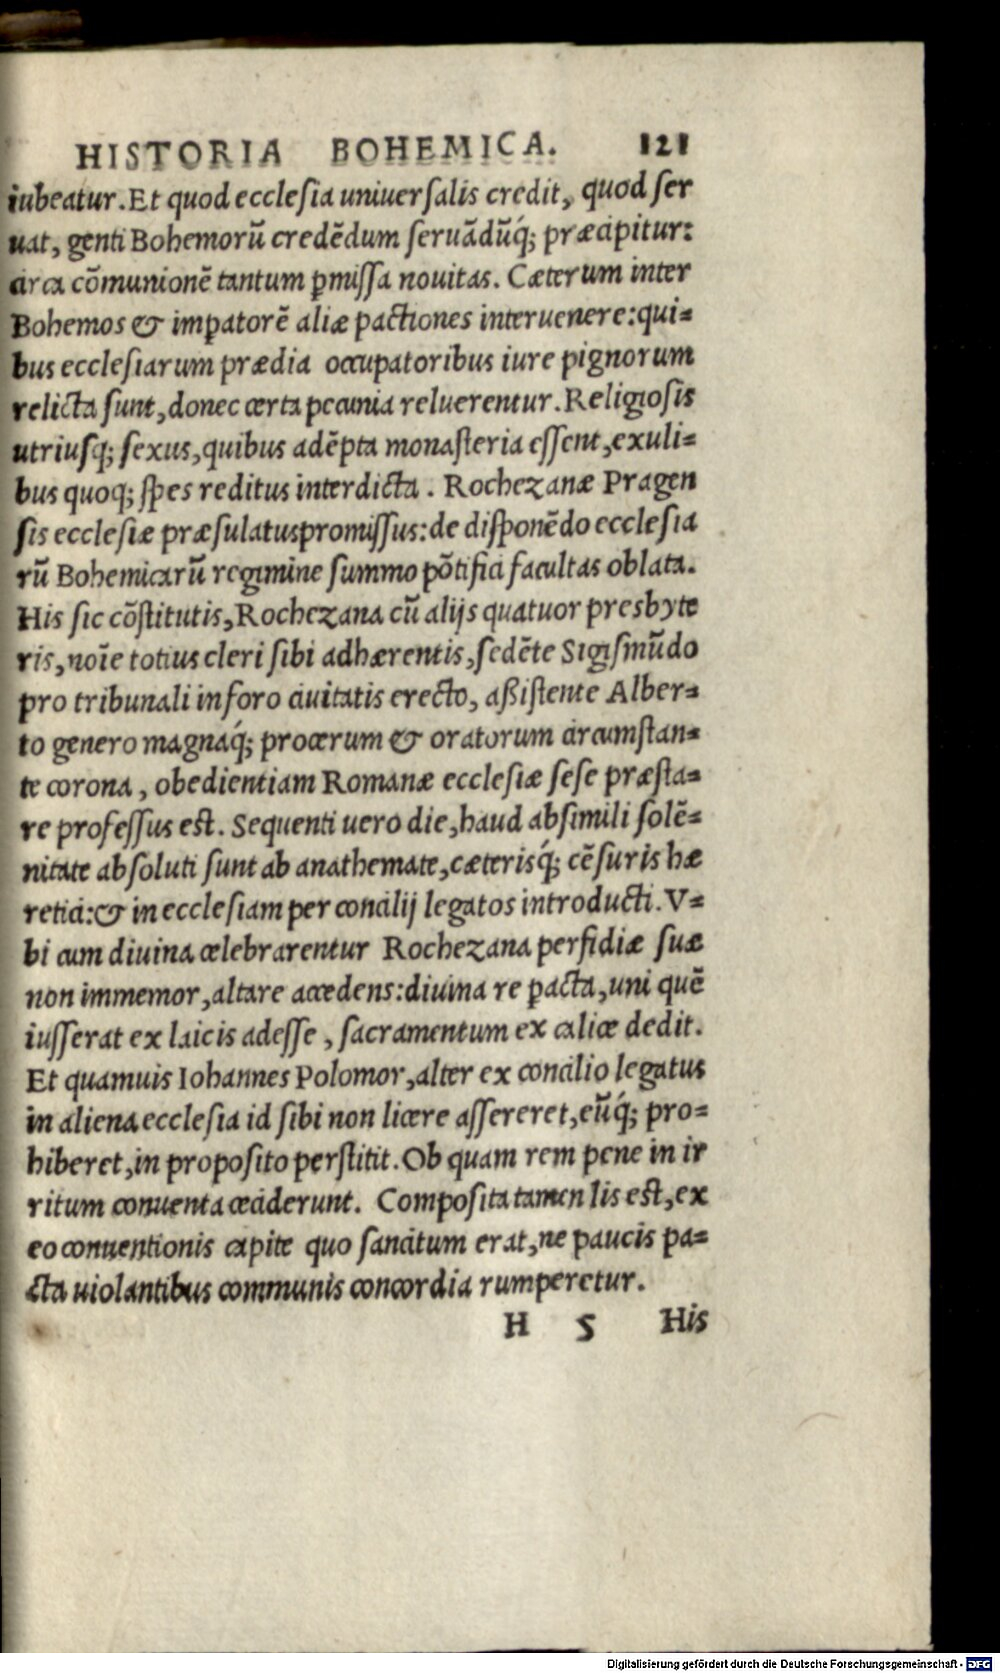 HISTORIA BOHEMICA. 121
iubeatur. Et quod ecclesia uniuersalis credit, quod ser
uat, genti Bohemorũ credẽdum seruãdũq́;, præcipitur:
circa cõmunionẽ tantum ꝑmissa nouitas. Cæterum inter
Bohemos & imꝑatorẽ aliæ pactiones interuenere: qui=
bus ecclesiarum prædia occupatoribus iure pignorum
relicta sunt, donec certa pecunia reluerentur. Religiosis
utriusq; sexus, quibus adẽpta monasteria essent, exuli=
bus quoq; spes reditus interdicta. Rochezanæ Pragen
sis ecclesiæ præsulatus promissus: de disponẽdo ecclesia
rũ Bohemicarũ regimine summo põtifici facultas oblata.
His sic cõstitutis, Rochezana cũ alijs quatuor presbyte
ris, noĩe totius cleri sibi adhærentis, sedẽte Sigismũdo
pro tribunali in foro ciuitatis erecto, aßistente Alber=
to genero magnaq́; procerum & oratorum circumstan=
te corona, obedientiam Romanæ ecclesiæ sese præsta=
re professus est. Sequenti uero die, haud absimili solẽ=
nitate absoluti sunt ab anathemate, cæterisq́; cẽsuris hæ
retici: & in ecclesiam per concilij legatos introducti. V=
bi cum diuina celebrarentur Rochezana perfidiæ suæ
non immemor, altare accedens: diuina re ꝑacta, uni quẽ
iusserat ex laicis adesse, sacramentum ex calice dedit.
Et quamuis Iohannes Polomor, alter ex concilio legatus
in aliena ecclesia id sibi non licere assereret, eũq́; pro=
hiberet, in proposito perstitit. Ob quam rem pene in ir
ritum conuenta ceciderunt. Composita tamen lis est, ex
eo conuentionis capite quo sancitum erat, ne paucis pa=
cta uiolantibus communis concordia rumperetur.
H 5 His
Digitalisierung gefördert durch die Deutsche Forschungsgemeinschaft - DFG